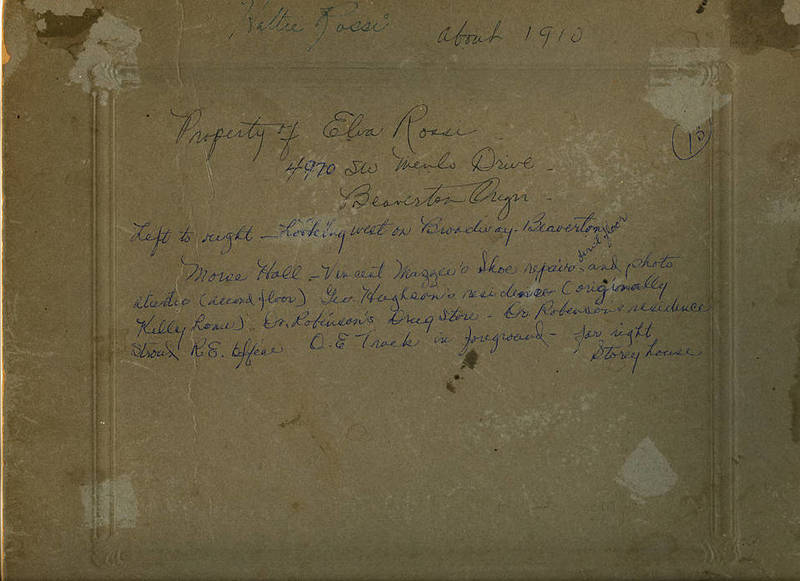 Rossi about 1910
Property of Elva Rossi
(13)
4970 SW Menlo Drive -
Beaverton Oregn -
Left to right - Looking west on Broadway - Beaverton
floor
Morse Hall - Vincent shoe repairs and photo
studio (second floor) Geo. Hughson's residence (originally
Kelly home) - Dr. Robinson's Drug Store - Dr Robinson's residence
Stroud R.E. Office O.E Track in foreground - far right
Storey house